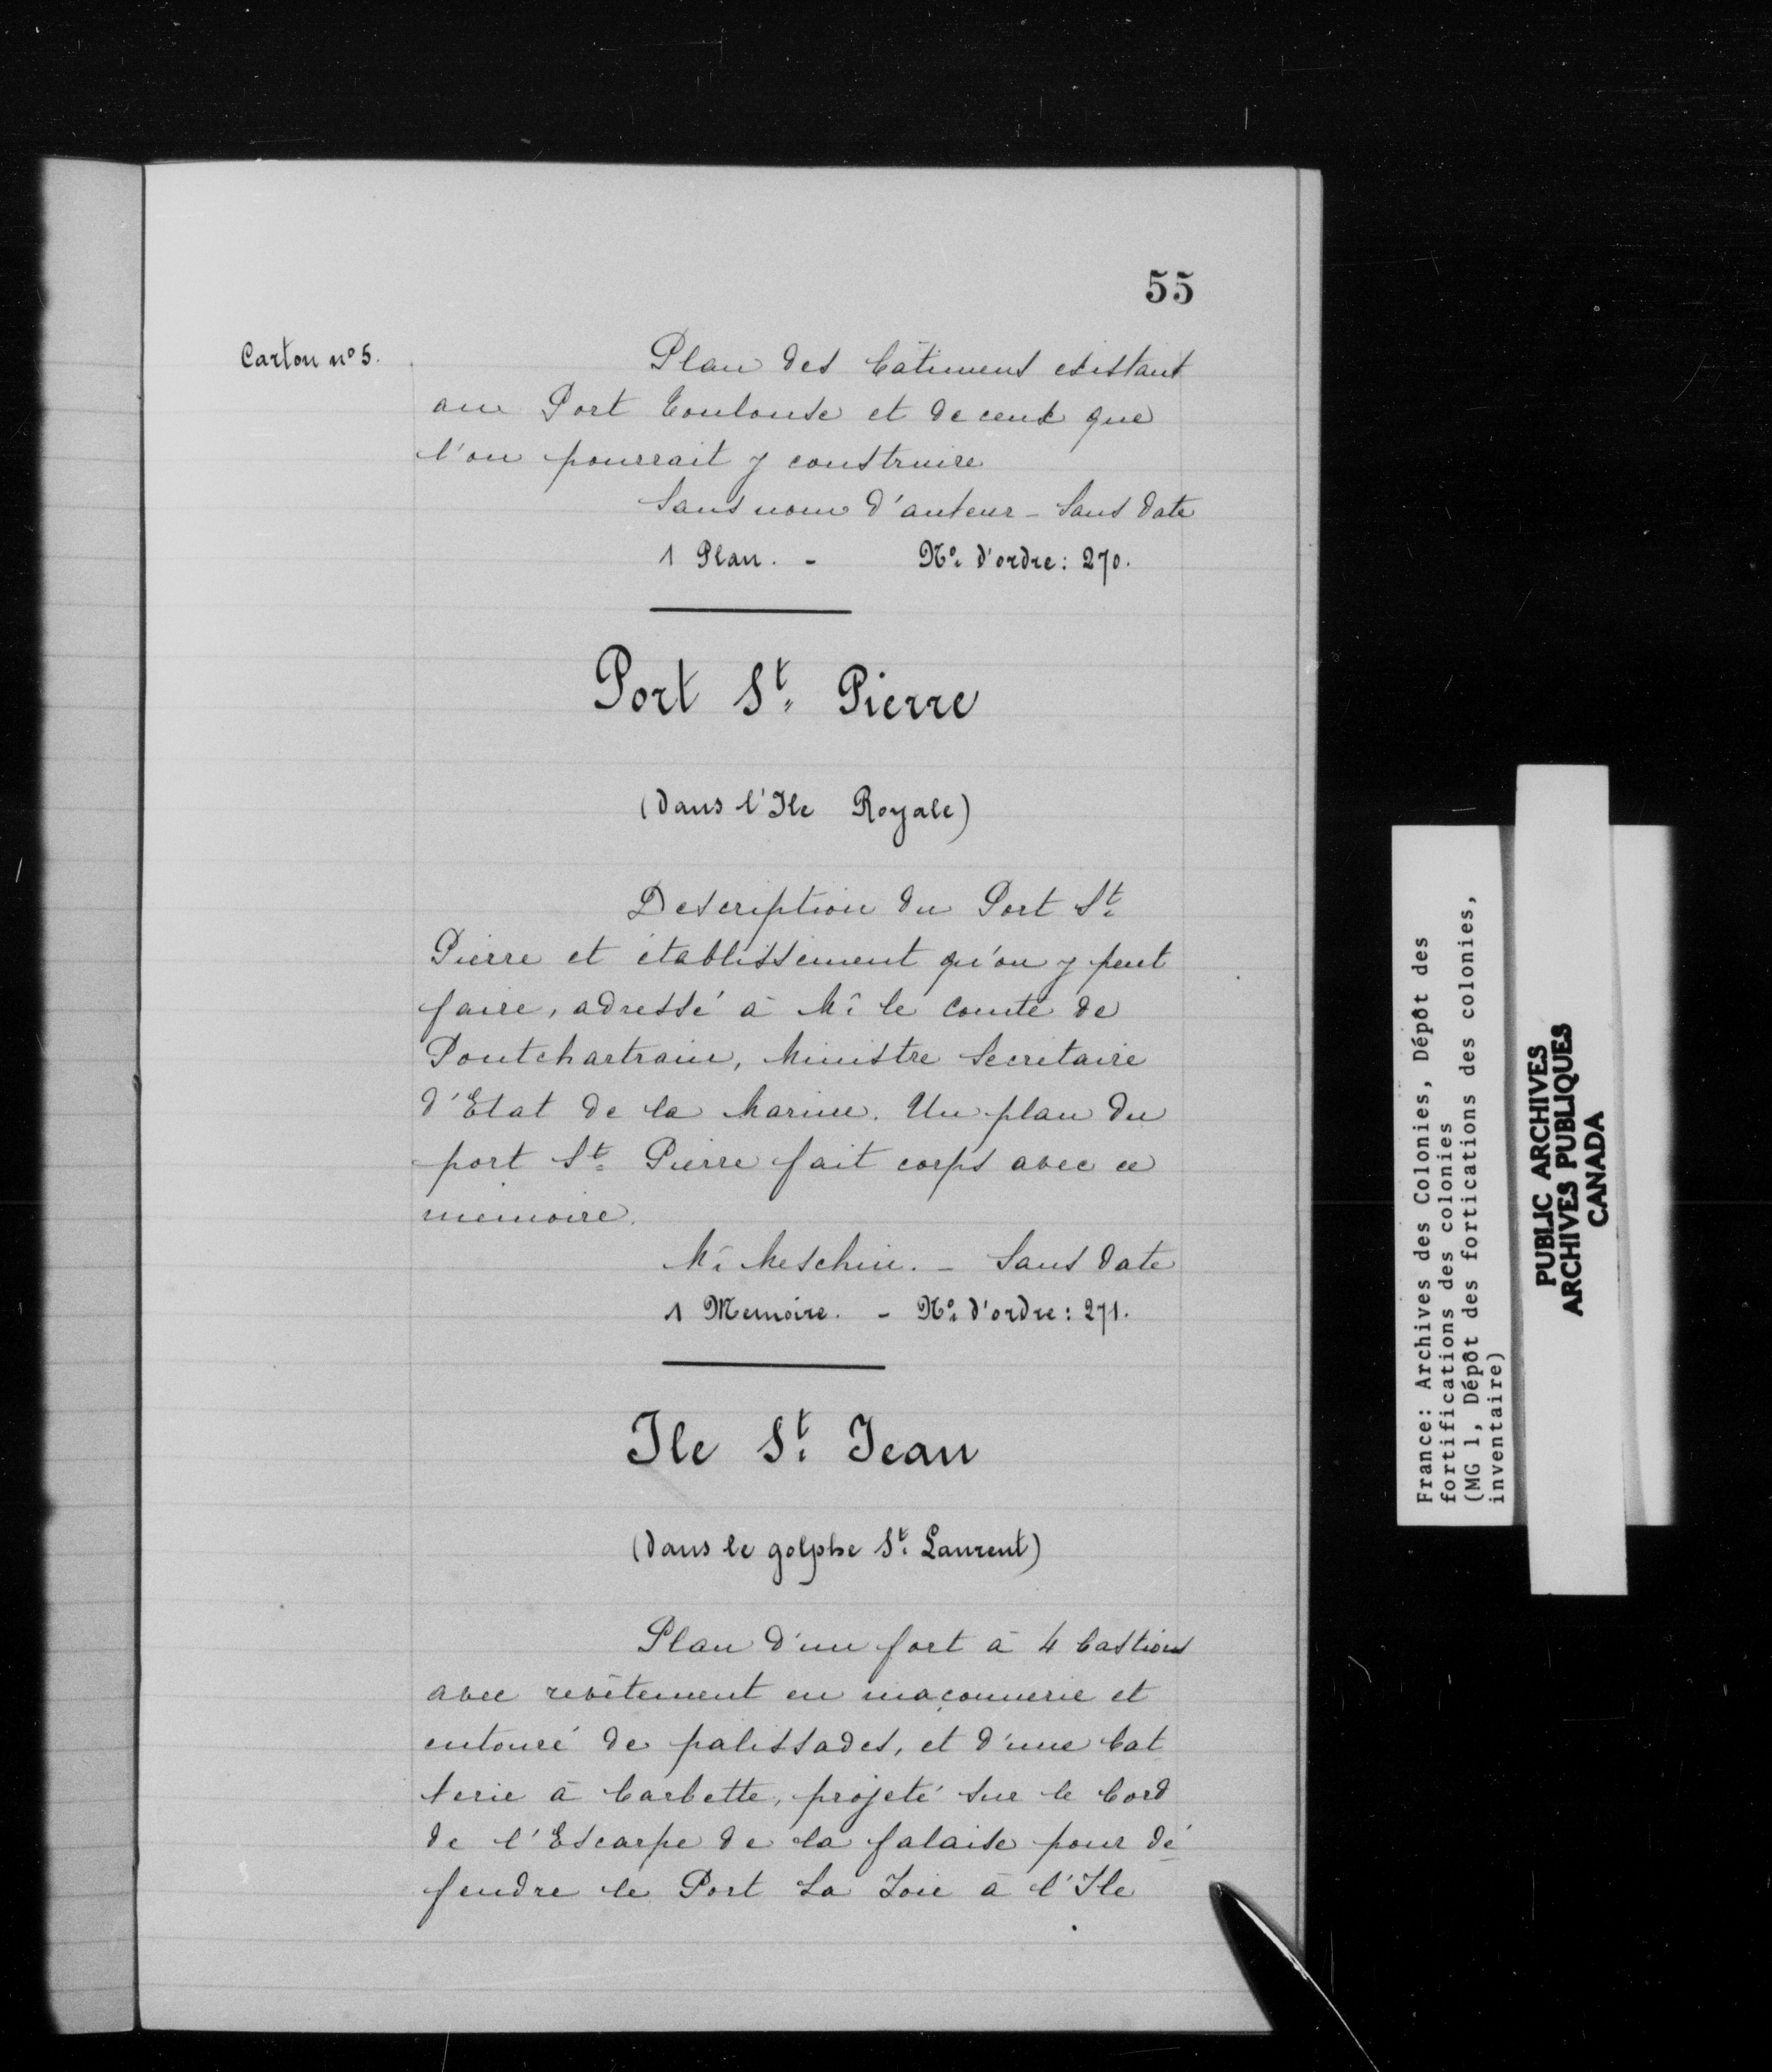 55
Carton nº 5.
Plan des bâtimens existant
au Port Toulouse et de ceux que
l'on pourrait y construire
Sans nom d'auteur - Sans date
1 Plan. - Nº d'ordre: 270.
Port St. Pierre
(Dans l'Ile Royale)
Description du Port St
Pierre et établissement qu'on y peut
faire, adressé à Mr le Comte de
Pontchartrain, Ministre Secrétaire
d'Etat de la Marine. Un plan du
port St Pierre fait corps avec ce
mémoire.
Mr Meschin. - Sans date
1 Memoire. - Nº d'ordre: 271.
Ile St. Jean
(Dans le golphe St. Laurent)
Plan d'un fort à 4 bastions
avec revêtement en maçonnerie et
entouré de palissades, et d'une bat
terie à barbette, projeté sur le bord
de l'Escarpe de la falaise pour dé
fendre le Port La Joie à l'Ile
France: Archives des Colonies, Dépôt des
fortifications des colonies
(MG 1, Dépôt des fortications des colonies,
inventaire)
PUBLIC ARCHIVES
ARCHIVES PUBLIQUES
CANADA